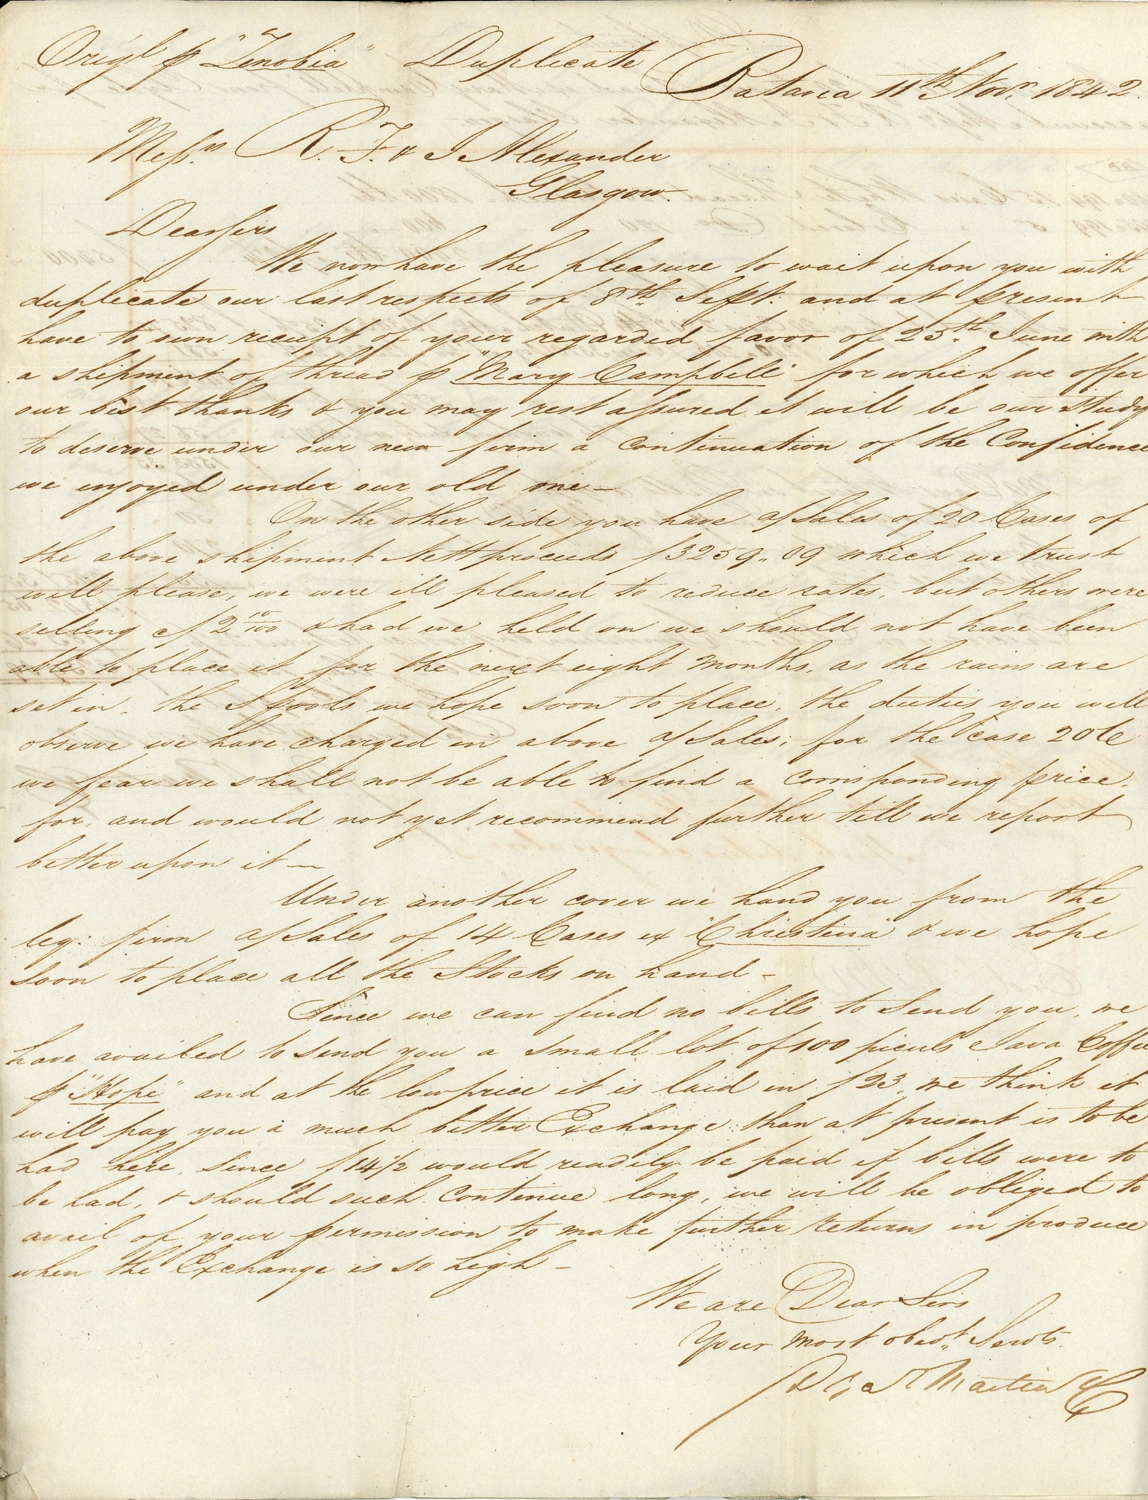 Origl p "Zenobia" Duplicate
Batavia 11th Novr. 1842.
Messrs R. F. & J Alexander
Glasgow.
Dear Sirs
We now have the pleasure to wait upon you with
duplicate our last respects of 8th Sept. and at present
have to own receipt of your regarded favor of 25th June with
a shipment of thread p "Mary Campbell" for which we offer
our best thanks & you may rest assured it will be our study
to deserve under our new firm a continuation of the Confidence
we enjoyed under our old one—
On the other side you have a/Sales of 20 Cases of
the above shipment Nett proceeds f3259.09 which we trust
will please, we were ill pleased to reduce rates, but others were
selling @ f2 10/100 & had we held on we should not have been
able to place it for the next eight months, as the rains are
set in. the Spools we hope soon to place, the duties you will
observe we have charged in above a/Sales; for the case 20
we fear we shall not be able to find a corresponding price
for, and would not yet recommend further till we report
better upon it—
Under another cover we hand you from the
firm a/Sales of 14 Cases ex "Christina" & we hope
soon to place all the Stocks on hand—
Since we can find no bills to send you, we
have availed to send you a small lot of 100 piculs Java Coffee
p "Hope" and at the low price it is laid in f23, we think it
will pay you a much better Exchange than at present is to be
had here, since f14½ would readily be paid if bills were to
be had, & should such continue long, we will be obliged to
avail of your permission to make further returns in produce
when the Exchange is so high—
We are Dear Sirs
Your most obedt. Servts.
Martin & C